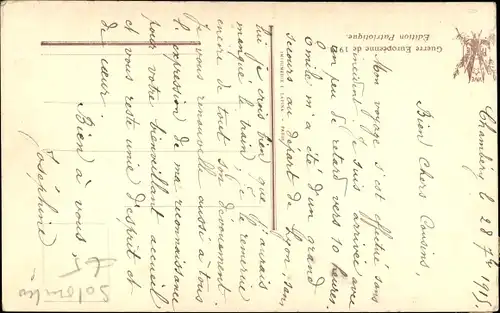 Guerre Européenne de 19
Edition Patriotique.
Chambéry le 28 7bre 1915.
Bien chers Cousins,
Mon voyage s'est effectué sans
incident. Je suis arrivée avec
un peu de retard vers 10 heures.
Emile m'a été d'un grand
secours au départ de Lyon, sans
lui je crois bien que j'aurais
manqué le train; je le remercie
encore de tout son dévouement
Je vous renouvelle aussi à tous
l'expression de ma reconnaissance
pour votre bienveillant accueil
et vous reste unie d'esprit et
de cœur.
Bien à vous
Joséphine